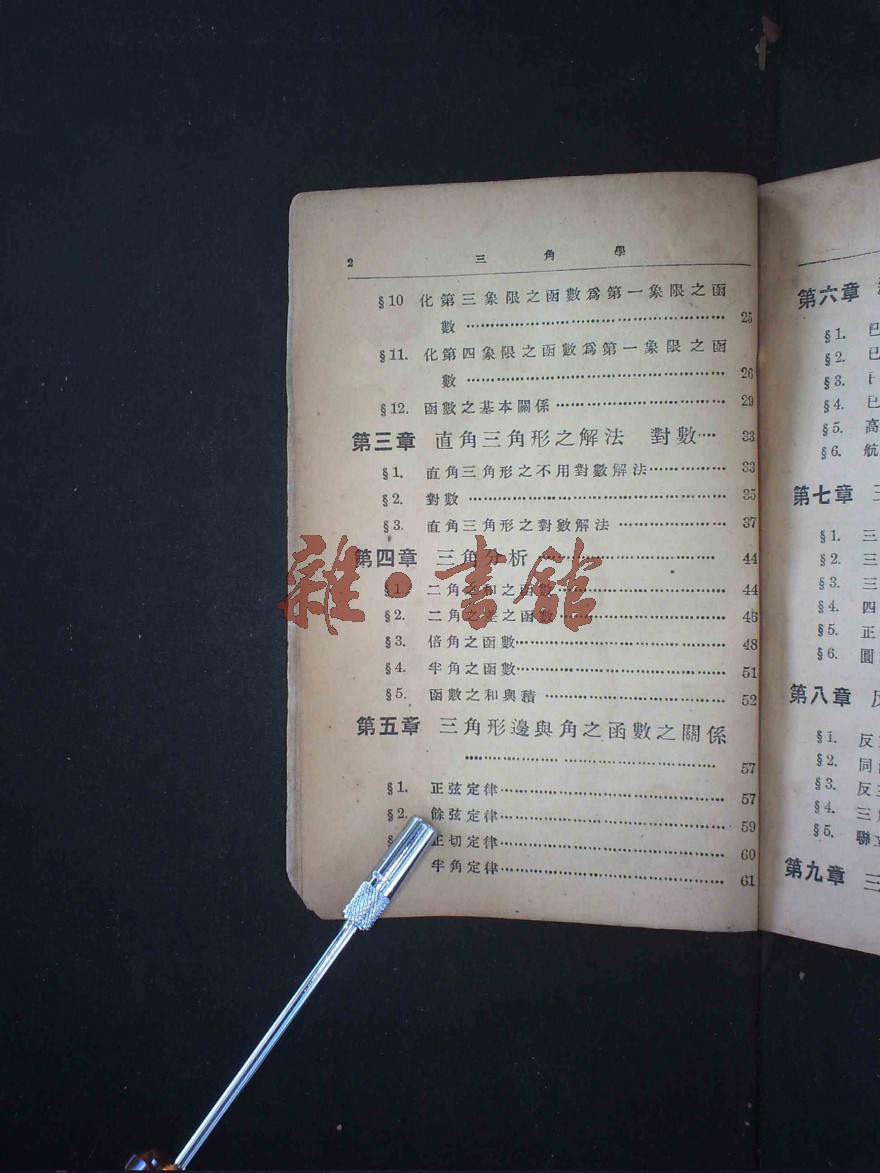 2 三角學
§10 化第三象限之函數爲第一象限之函
數 …… 25
§11. 化第四象限之函數爲第一象限之函
數 …… 26
§12. 函數之基本關係 …… 29
第三章 直角三角形之解法 對數 …… 33
§1. 直角三角形之不用對數解法 …… 33
§2. 對數 …… 35
§3. 直角三角形之對數解法 …… 37
第四章 三角分析 …… 44
§1. 二角之和之函數 …… 44
§2. 二角之差之函數 …… 46
§3. 倍角之函數 …… 48
§4. 半角之函數 …… 51
§5. 函數之和與積 …… 52
第五章 三角形邊與角之函數之關係
…… 57
§1. 正弦定律 …… 57
§2. 餘弦定律 …… 59
§ 正切定律 …… 60
半角定律 …… 61
雜·書館
第六章
§1. 已
§2. 已
§3.
§4. 已
§5. 高
§6. 航
第七章 三
§1. 三
§2. 三
§3. 三
§4. 四
§5. 正
§6. 圓
第八章 反
§1. 反
§2. 同
§3. 反
§4. 三
§5. 聯
第九章 三